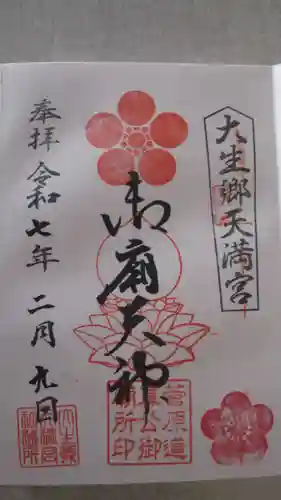 大生郷天満宮
御廟天神
奉拝 令和七年 二月 九日
菅原道
真公御
廟所印